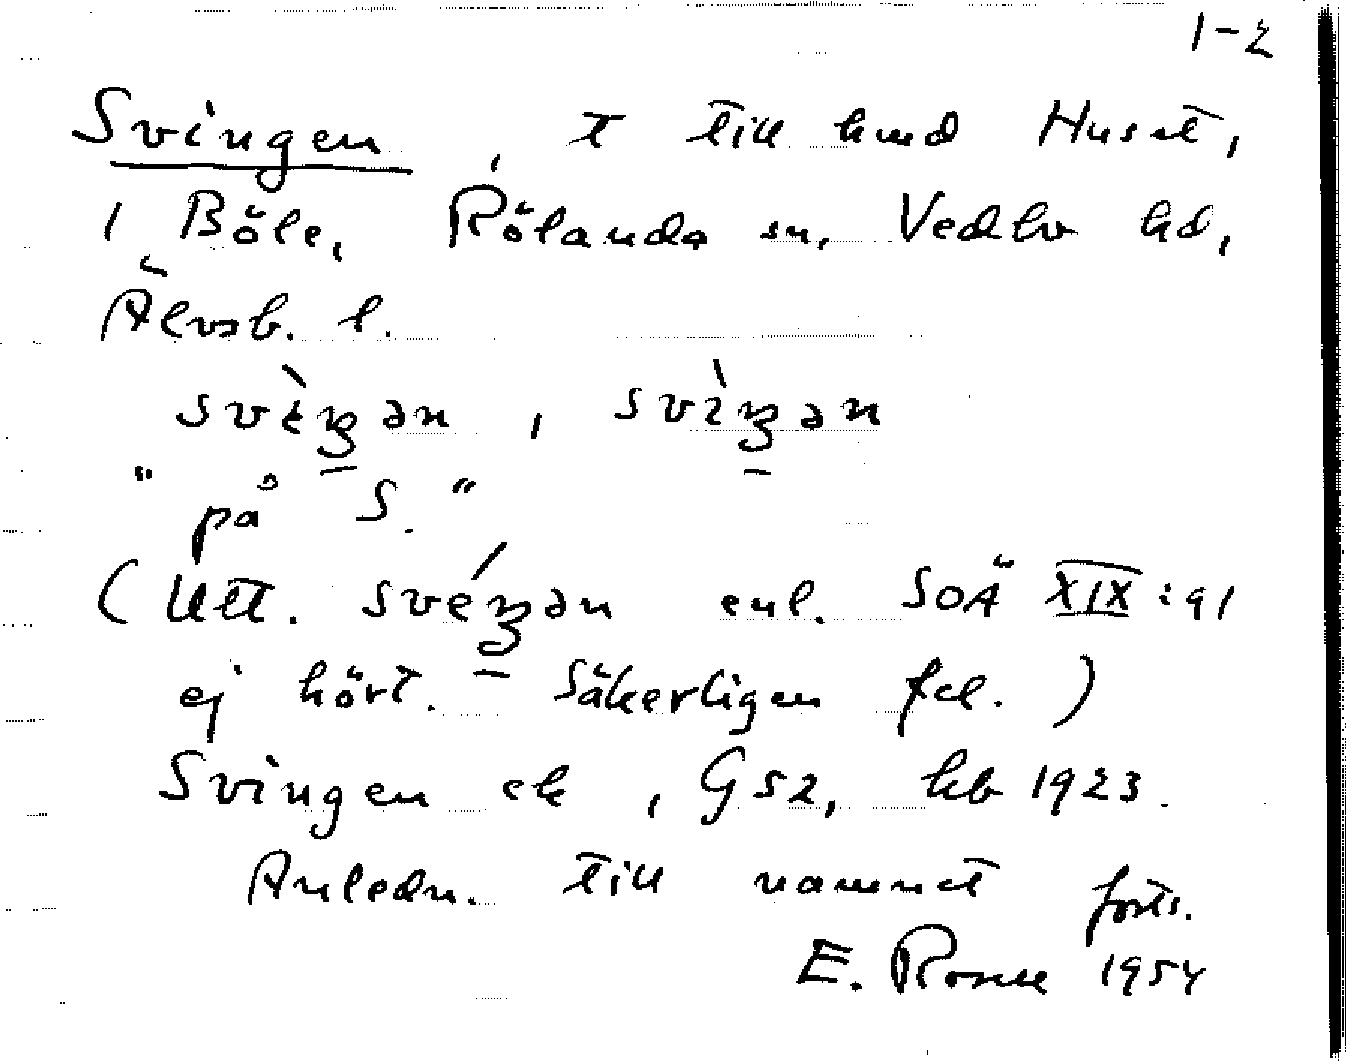 1-2
Svingen, t till hmd Huset,
1 Böle, Rölanda sn, Vedbo hd,
Älvsb. l.
svìŋən, svìŋən
"på S."
(Utt. svéŋən enl. SOÄ XIX:91
ej hört. Säkerligen fel.)
Svingen ek, G52, kb 1923.
Anledn. till namnet forts.
E. 1954